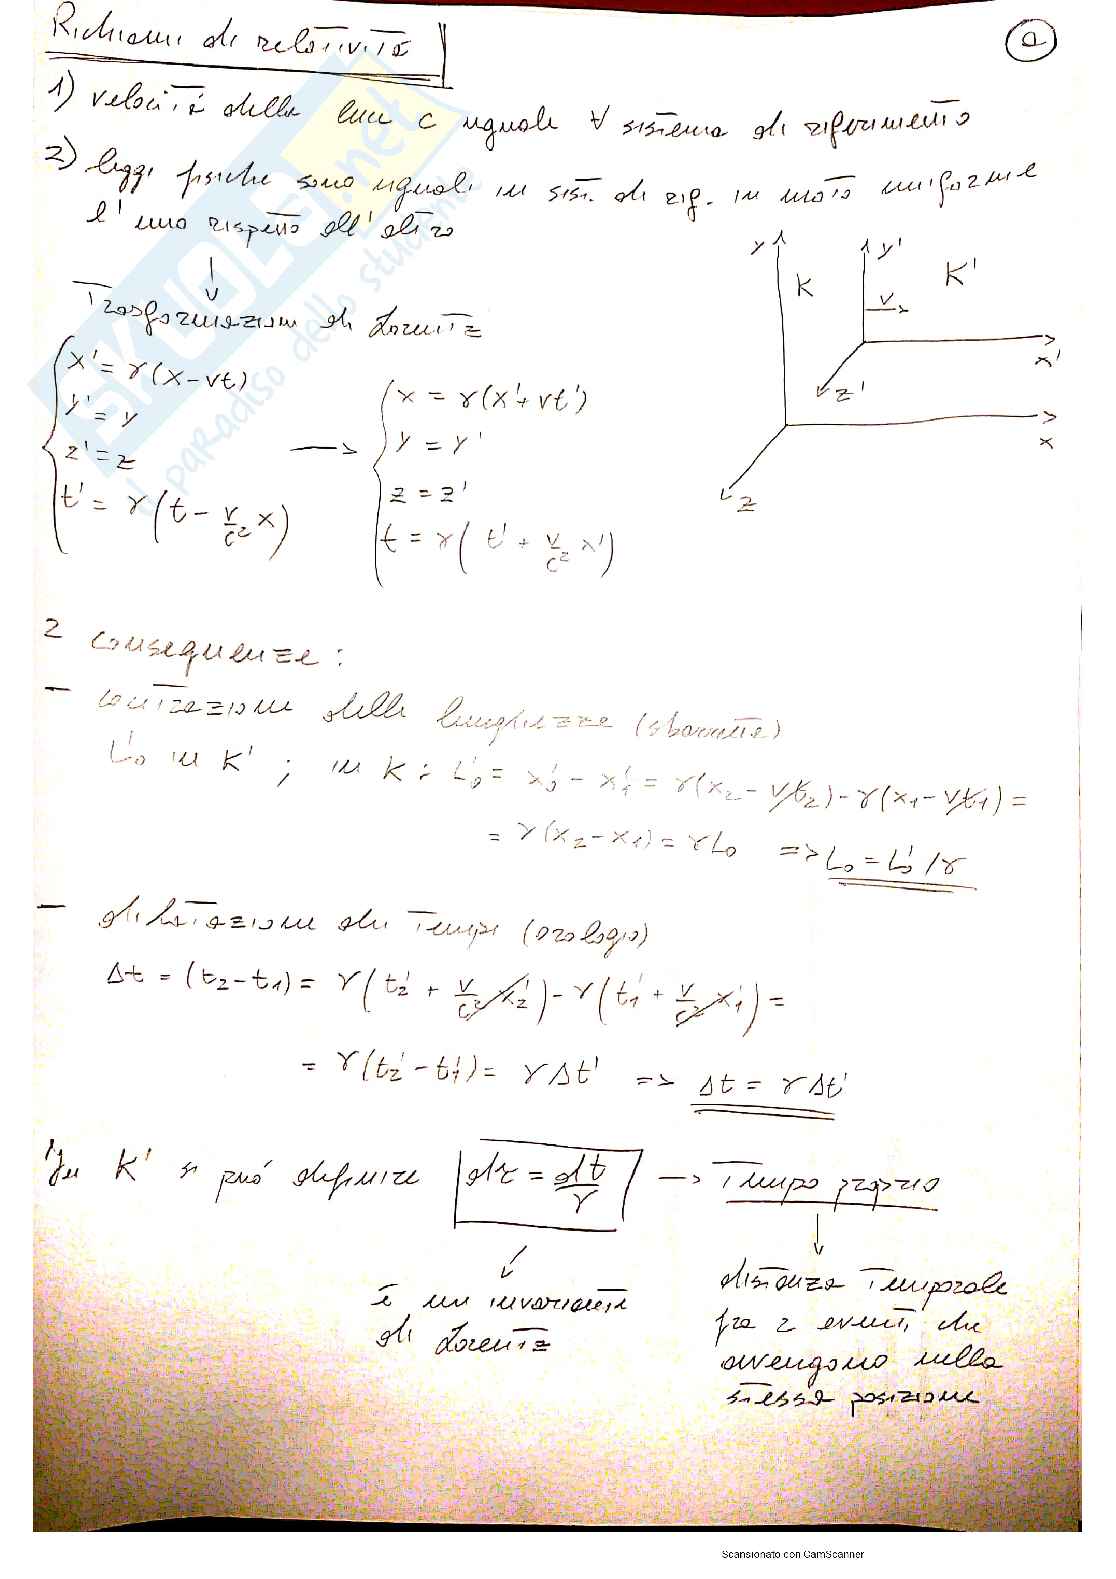 Richiami di relatività
a
1) velocità della luce c uguale ∀ sistema di riferimento
2) leggi fisiche sono uguali in sist. di rif. in moto uniforme
l'uno rispetto all'altro
↓
Trasformazioni di Lorentz
x' = γ(x-vt)
y' = y
z' = z
t' = γ(t - v/c² x)
→
x = γ(x' + vt')
y = y'
z = z'
t = γ(t' + v/c² x')
y K y' K'
v
x'
z'
x
z
2 conseguenze:
- contrazione delle lunghezze (sbarrette)
L'₀ in K' ; in K : L'₀ = x'₂ - x'₁ = γ(x₂ - vt₂) - γ(x₁ - vt₁) =
= γ(x₂ - x₁) = γL₀ => L₀ = L'₀/γ
- dilatazione dei tempi (orologio)
Δt = (t₂ - t₁) = γ(t'₂ + v/c² x'₂) - γ(t'₁ + v/c² x'₁) =
= γ(t'₂ - t'₁) = γΔt' => Δt = γΔt'
In K' si può definire dτ = dt/γ → Tempo proprio
è un invariante
di Lorentz
distanza temporale
fra 2 eventi che
avvengono nella
stessa posizione
SKUOLA.net
il paradiso dello studente
Scansionato con CamScanner